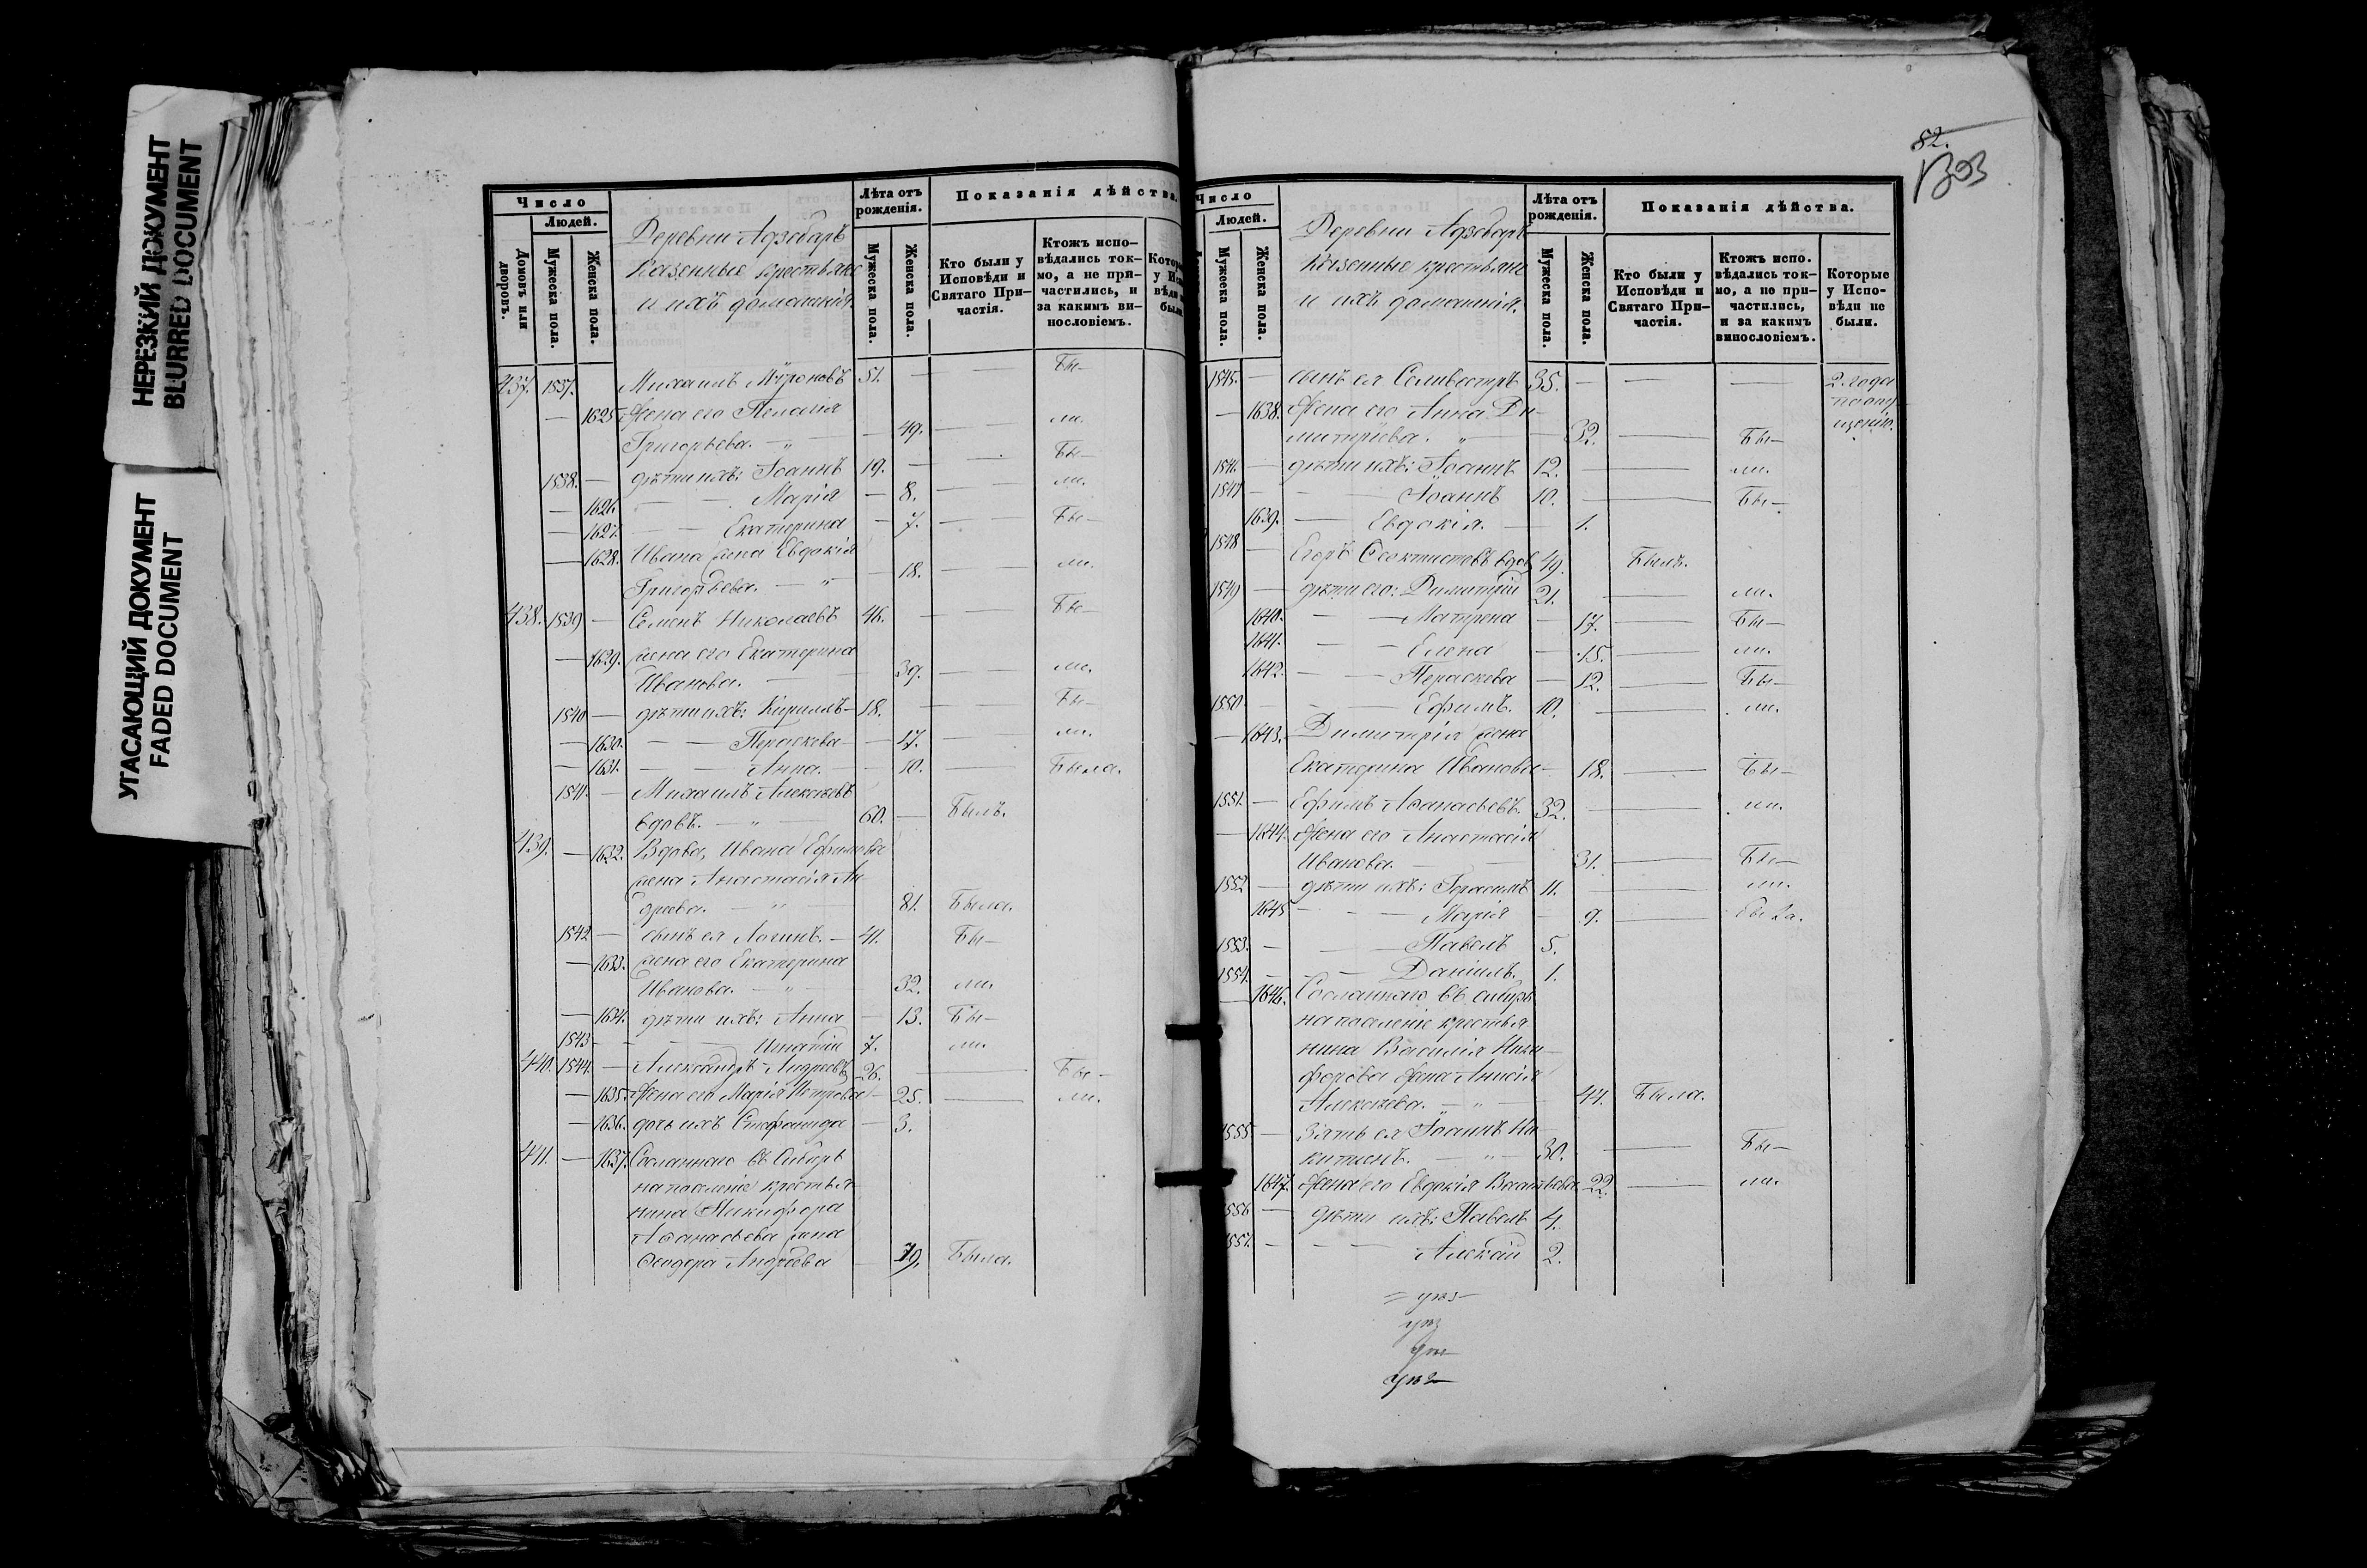 НЕРЕЗКИЙ ДОКУМЕНТ
BLURRED DOCUMENT
УГАСАЮЩИЙ ДОКУМЕНТ
FADED DOCUMENT
Число
Людей.
Домовъ или дворовъ.
Мужеска пола.
Женска пола.
Деревни
Казенные крестьяне
и ихъ домашнія.
Лѣта отъ рожденія.
Мужеска пола.
Женска пола.
Показанія дѣйства.
Кто были у Исповѣди и Святаго Причастія.
Ктожъ исповѣдались токмо, а не причастились, и за какимъ винословіемъ.
437. 1537. Михаилъ Мироновъ 51. — — Бы—
— 1625. Жена его Пелагія
Григорьева. — 49. — ли.
1538. — дѣти ихъ: Іоаннъ 19. — Бы—
— 1626. — — Марія — 8. — ли.
— 1627. — — Екатерина — 7. — Бы—
— 1628. Ивана жена Евдокія
Григорьева. — — 18. — ли.
438. 1539 — Семенъ Николаевъ 46. — Бы—
— 1629. жена его Екатерина
Иванова. — 39. — ли.
1540 — дѣти ихъ: Кириллъ — 18. — Бы—
— 1630. — — Параскева — 17. — ли.
— 1631. — — Анна. — 10. — Была.
1541. — Михаилъ Алексѣевъ
вдовъ. — 60. — Былъ.
439. — 1632. Вдова, Ивана Ефимова
жена Анастасія Ан-
дреева. — 81. Была.
1542 — сынъ ея Логинъ. — 41. Бы—
— 1633. жена его Екатерина
Иванова. — 32. ли.
— 1634. дѣти ихъ: Анна — 13. Бы—
1543 — — — Игнатій 7. ли.
440. 1544. — Александръ Андреевъ 26. — Бы—
— 1635. Жена его Марія Петрова — 25. — ли.
— 1636. дочь ихъ Стефанида — 3.
441. — 1637. Сосланнаго въ Сибирь
на поселеніе крестья-
нина Никифора
Аѳанасьева жена
Ѳеодора Андреева — 79. Была.
82.
Число
Людей.
Мужеска пола.
Женска пола.
Деревни
Казенные крестьяне
и ихъ домашнія.
Лѣта отъ рожденія.
Мужеска пола.
Женска пола.
Показанія дѣйства.
Кто были у Исповѣди и Святаго Причастія.
Ктожъ исповѣдались токмо, а не причастились, и за какимъ винословіемъ.
Которые у Исповѣди не были.
1545. — сынъ ея Селивестръ 35. — — — 2. года
по опу-
щенію.
— 1638. Жена его Анна Ди-
митріева. — 32. — Бы—
1546. — дѣти ихъ: Іоаннъ 12. — ли.
1547 — — — Іоаннъ 10. — Бы—
1639. — Евдокія. — 1.
1548 — Егоръ Ѳеоктистовъ вдов. 49. Былъ.
1549 — дѣти его: Димитрій 21. — ли.
1640. — — Матрена — 17. — Бы—
1641. — — Елена — 15. — ли.
1642. — — Параскева — 12. — Бы—
1550. — — Ефимъ. 10. — ли.
— 1643. Димитрія жена
Екатерина Иванова — 18. — Бы—
1551. — Ефимъ Аѳанасьевъ. 32. — ли.
— 1644. Жена его Анастасія
Иванова. — 31. — Бы—
1552 — дѣти ихъ: Герасимъ 11. — ли.
1645 — — Марія — 9. — была.
1553. — — Павелъ 5.
1554. — — Даніилъ. 1.
— 1646. Сосланнаго въ сибирь
на поселеніе крестья-
нина Василія Ники-
форова Жена Анисія
Алексѣева. — 44. Была.
1555 — Зять ея Іоаннъ Ни-
китинъ. — 30. — Бы—
1647. Жена его Евдокія Васильева 22. — ли.
1556 — дѣти ихъ: Павелъ 4.
1557. — — Алексій 2.